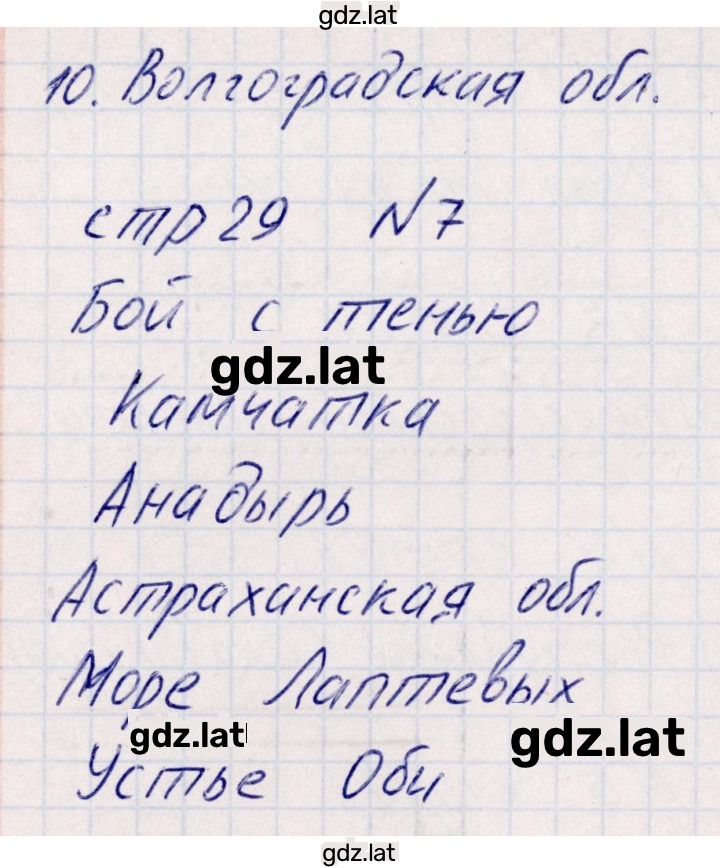 gdz.lat
10. Волгоградская обл.
стр 29 №7
Бой с тенью
gdz.lat
Камчатка
Анадырь
Астраханская обл.
Море Лаптевых
gdz.lat
gdz.lat
Устье Оби
gdz.lat